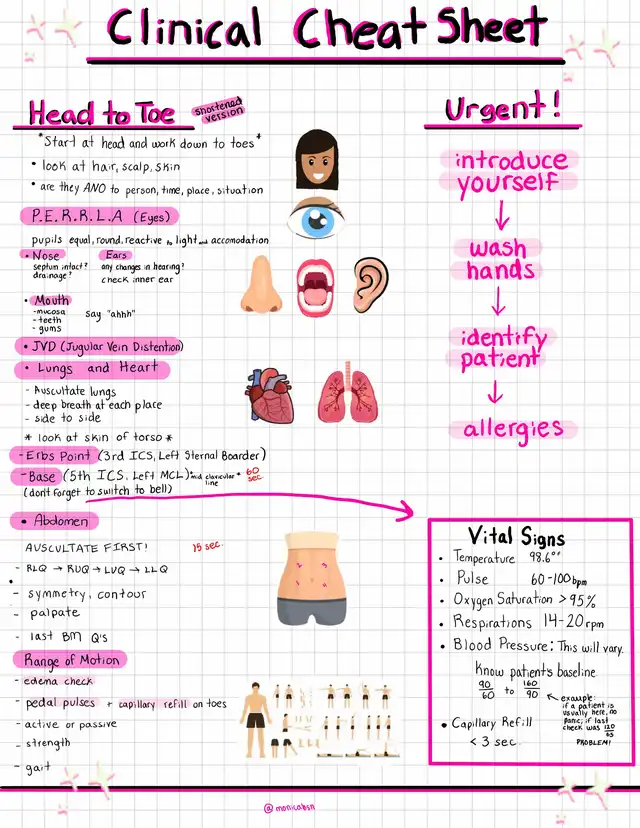 Clinical Cheat Sheet
Head to Toe
shortened version
*Start at head and work down to toes*
• look at hair, scalp, skin
• are they ANO to person, time, place, situation
P.E.R.R.L.A (Eyes)
pupils equal, round, reactive to light and accomodation
• Nose
septum intact?
drainage?
Ears
any changes in hearing?
check inner ear
• Mouth
-mucosa
-teeth
- gums
say "ahhh"
• JVD (Jugular Vein Distention)
• Lungs and Heart
- Auscultate lungs
- deep breath at each place
- side to side
* look at skin of torso *
-Erbs Point (3rd ICS, Left Sternal Boarder)
-Base (5th ICS, Left MCL) *mid clavicular line* 60 sec.
(don't forget to switch to bell)
• Abdomen
AUSCULTATE FIRST! 15 sec.
- RLQ → RUQ → LUQ → LLQ
- symmetry, contour
- palpate
- last BM Q's
Range of Motion
- edema check
- pedal pulses + capillary refill on toes
- active or passive
- strength
- gait
Urgent!
introduce
yourself
wash
hands
identify
patient
allergies
Vital Signs
• Temperature 98.6°F
• Pulse 60-100bpm
• Oxygen Saturation > 95%
• Respirations 14-20rpm
• Blood Pressure: This will vary.
Know patient's baseline
90/60 to 160/90
example:
if a patient is
usually here, no
panic; if last
check was 120/65
PROBLEM!
• Capillary Refill
< 3 sec.
@monicabsn